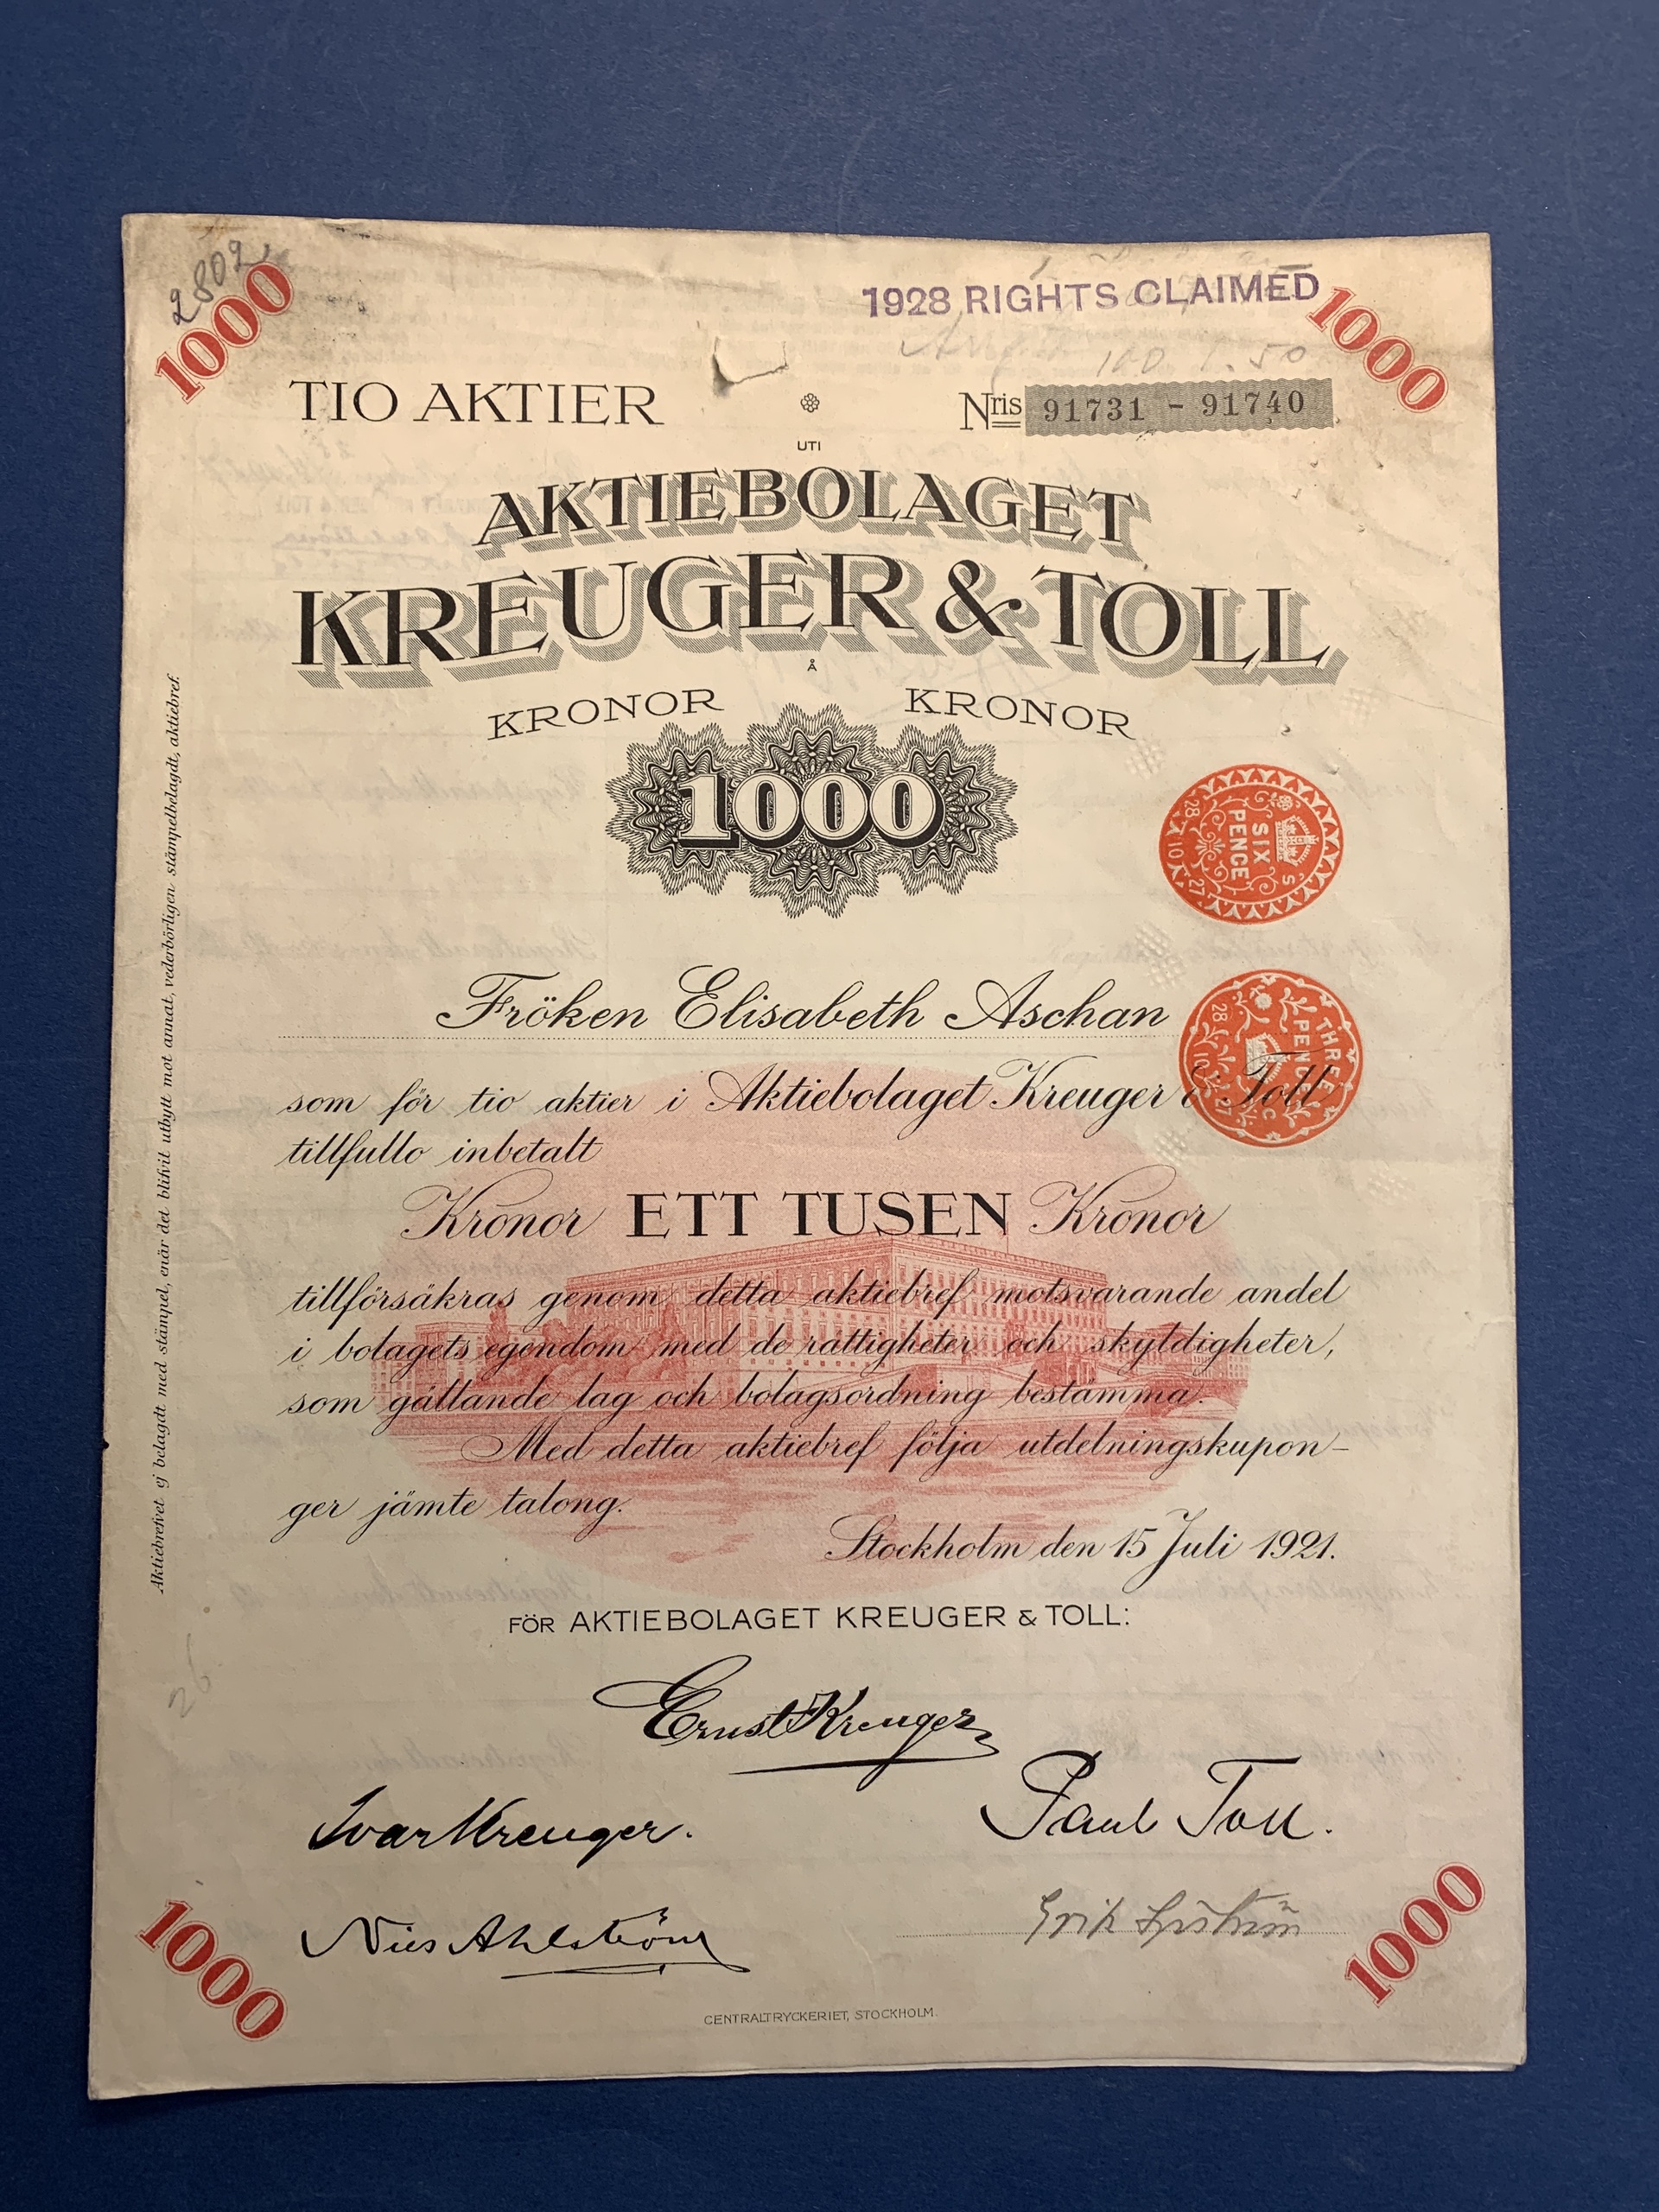 2802
1000
1928 RIGHTS CLAIMED
1000
100 1.50
TIO AKTIER
Nris 91731 - 91740
UTI
AKTIEBOLAGET
KREUGER & TOLL
Å
KRONOR KRONOR
1000
SIX PENCE
28 10 27
Fröken Elisabeth Aschan
THREE PENCE
28 10 27
som för tio aktier i Aktiebolaget Kreuger & Toll
tillfullo inbetalt
Kronor ETT TUSEN Kronor
tillförsäkras genom detta aktiebref motsvarande andel
i bolagets egendom med de rättigheter och skyldigheter,
som gällande lag och bolagsordning bestämma.
Med detta aktiebref följa utdelningskupon-
ger jämte talong.
Stockholm den 15 Juli 1921.
Aktiebrefvet ej belagdt med stämpel, enär det blifvit utbytt mot annat, vederbörligen stämpelbelagdt, aktiebref.
26
FÖR AKTIEBOLAGET KREUGER & TOLL:
Ernst Kreuger
Ivar Kreuger.
Paul Toll.
Nils Ahlström
Erik
1000
1000
CENTRALTRYCKERIET, STOCKHOLM.